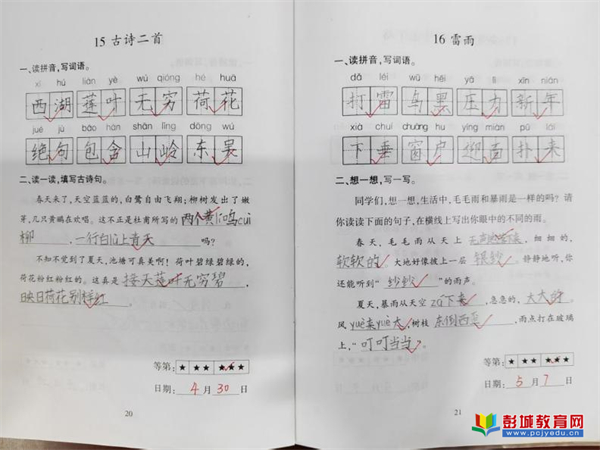 15 古诗二首
一、读拼音,写词语。
xī hú lián yè wú qióng hé huā
西湖 莲叶 无穷 荷花
jué jù bāo hán shān lǐng dōng wú
绝句 包含 山岭 东吴
二、读一读,填写古诗句。
春天来了,天空蓝蓝的,白鹭自由飞翔;柳树发出了嫩
芽,几只黄鹂在欢唱。这不正是杜甫所写的两个黄li鸣cuì
柳,一行白lù上青天吗?
不知不觉到了夏天,池塘可真美啊!荷叶碧绿碧绿的,
荷花粉红粉红的。这真是接天莲叶无穷碧,
映日荷花别样红。
等第: ★ ★★ ★★★
日期: 4 月 30 日
20
16 雷雨
一、读拼音,写词语。
dǎ léi wū hēi yā lì xīn nián
打雷 乌黑 压力 新年
xià chuí chuāng hu yíng miàn pū lái
下垂 窗户 迎面 扑来
二、想一想,写一写。
同学们,想一想,生活中,毛毛雨和暴雨是一样的吗?请
你读读下面的句子,在横线上写出你眼中的不同的雨。
春天,毛毛雨从天上,细细的,
软软的。大地好像披上一层银纱。静静地听,你
还能听到“沙沙”的雨声。
夏天,暴雨从天空下来,急急的,大大的。
风yuè来yuè大,树枝东倒西歪,雨点打在玻璃
上,“叮叮当当”。
等第: ★ ★★ ★★★
日期: 5 月 7 日
21
彭城教育网
www.pcjyedu.cn